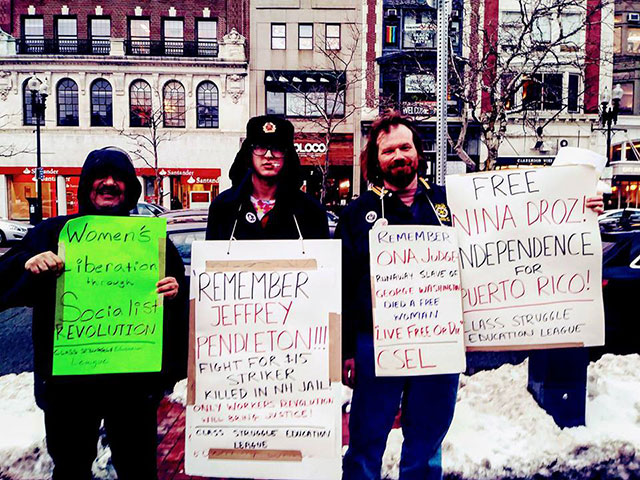 Santander
Santander
Santander
OLOCO
WELCOME
Women's
Liberation
through
Socialist
REVOLUTION
CLASS STRUGGLE Education
League
REMEMBER
JEFFREY
PENDLETON!!!
FIGHT FOR $15
STRIKER
KILLED IN NH JAIL!
ONLY WORKERS REVOLUTION
WILL BRING JUSTICE!
CLASS STRUGGLE EDUCATION
LEAGUE
REMEMBER
ONA JUDGE
RUNAWAY SLAVE OF
GEORGE WASHINGTON
DIED A FREE
WOMAN
LIVE FREE OR DIE
CSEL
FREE
NINA DROZ!
INDEPENDENCE
FOR
PUERTO RICO!
CLASS STRUGGLE
EDUCATION LEAGUE